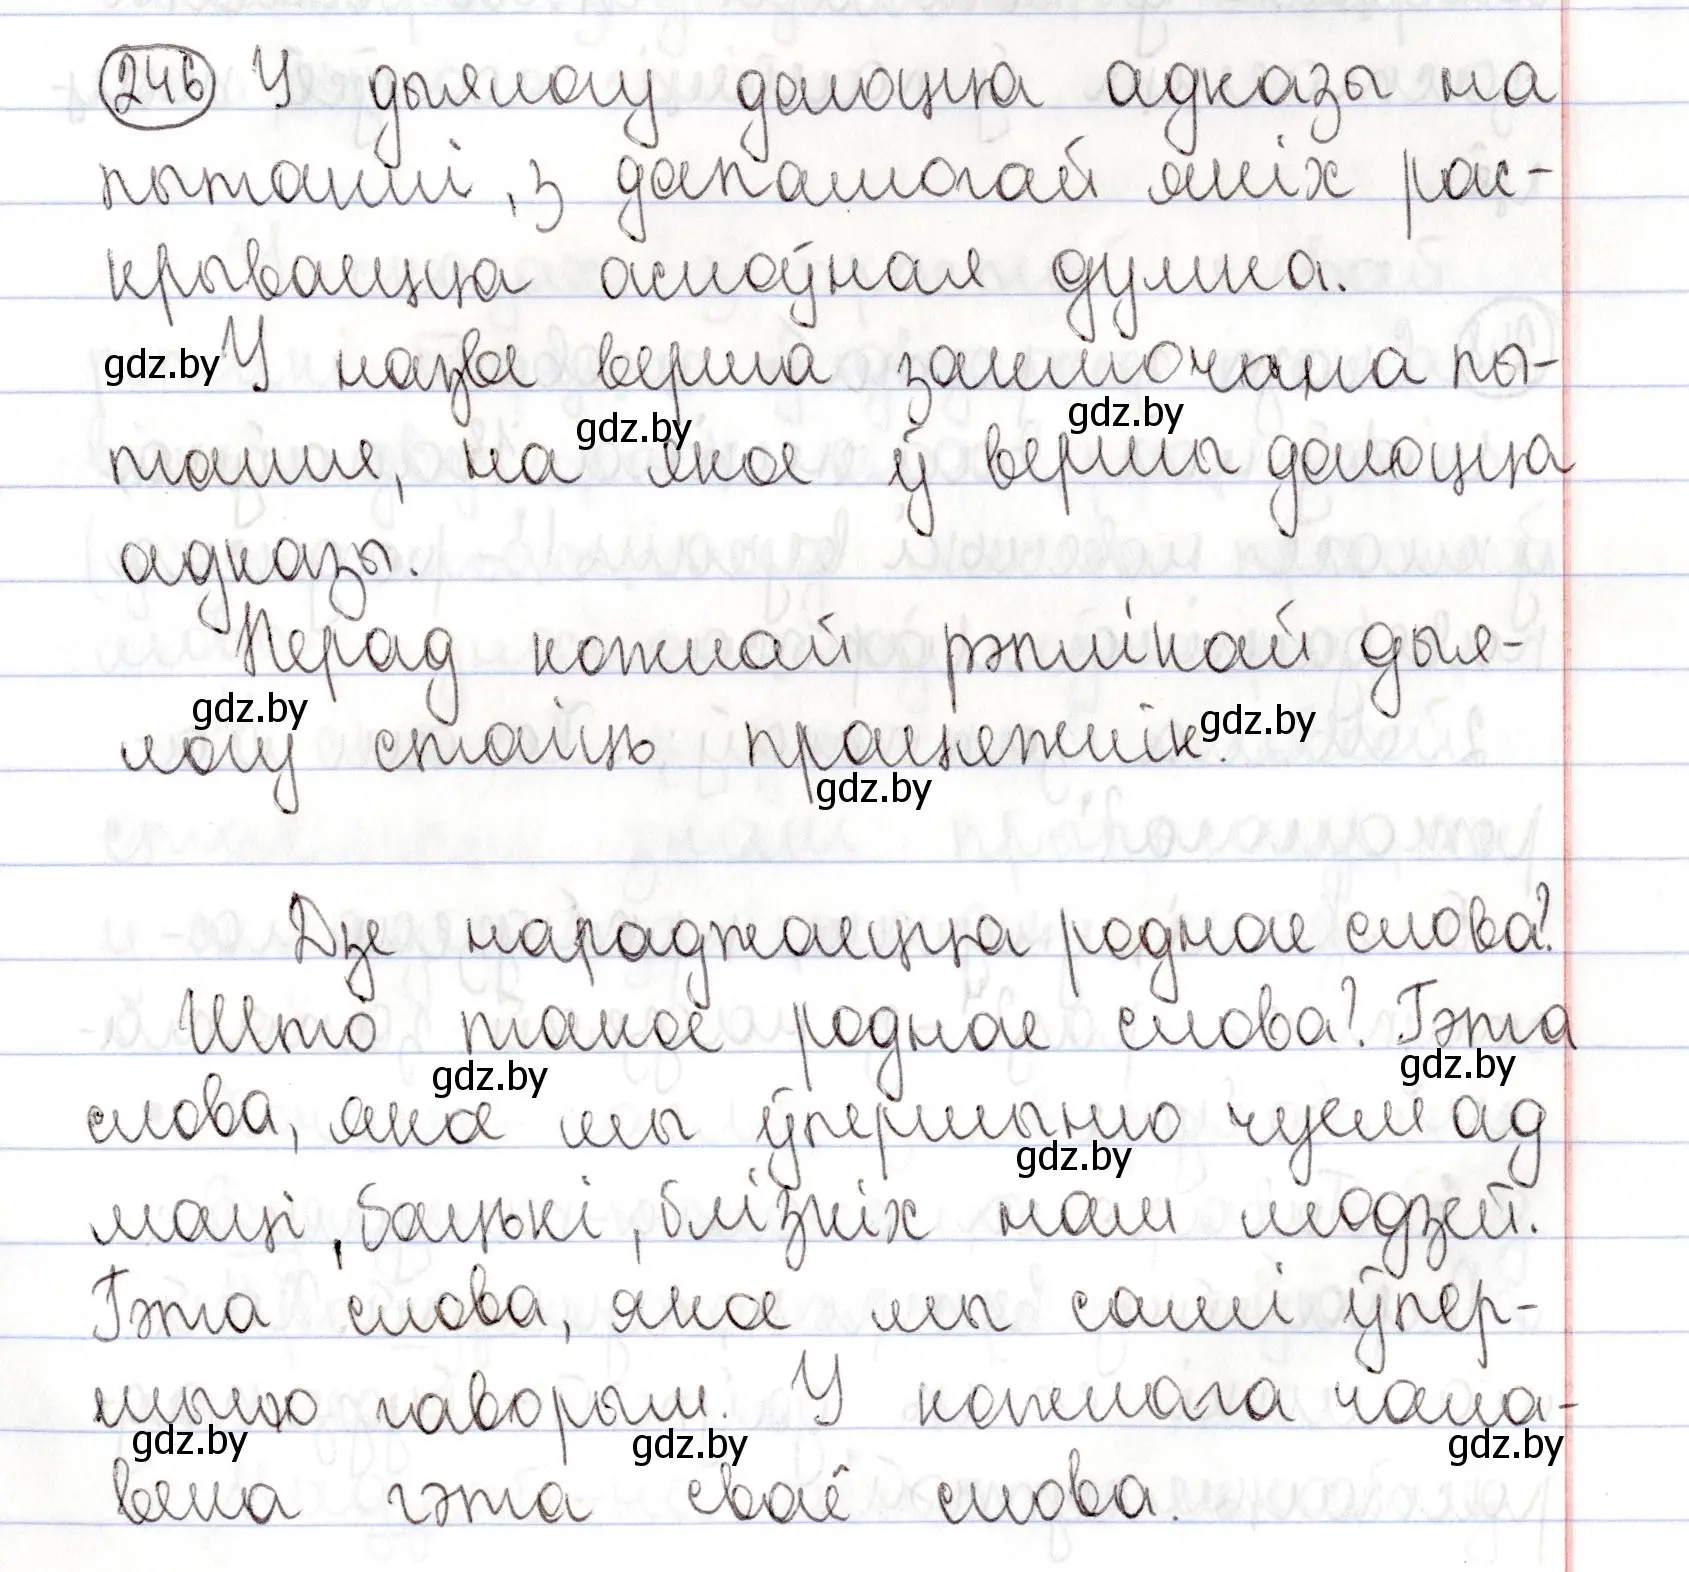 246 У дыялогу даюцца адказы на
пытанні, з дапамогай якіх рас-
крываецца асноўная думка.
У назве верша заключана пы-
танне, на якое ў вершы даюцца
адказы.
Перад кожнай рэплікай дыя-
логу стаіць працяжнік.
Дзе нараджаецца роднае слова?
Што такое роднае слова? Гэта
слова, якое мы ўпершыню чуем ад
маці, бацькі, блізкіх нам людзей.
Гэта слова, якое мы самі ўпер-
шыню гаворым. У кожнага чала-
века гэта сваё слова.
gdz.by
gdz.by
gdz.by
gdz.by
gdz.by
gdz.by
gdz.by
gdz.by
gdz.by
gdz.by
gdz.by
gdz.by